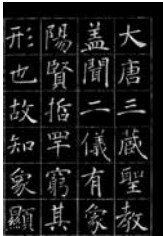 大唐三藏聖教
盖聞二儀有象
陽賢哲罕窮其
形也故知象顯